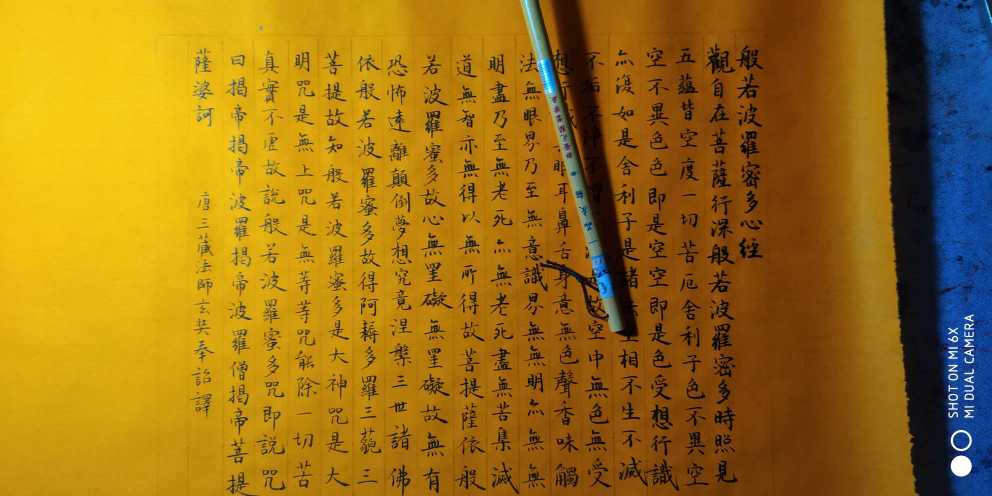 般若波羅密多心經
觀自在菩薩行深般若波羅密多時照見
五蘊皆空度一切苦厄舍利子色不異空
空不異色色即是空空即是色受想行識
亦復如是舍利子是諸法空相不生不滅
不垢不淨不增不減是故空中無色無受
想行識無眼耳鼻舌身意無色聲香味觸
法無眼界乃至無意識界無無明亦無無
明盡乃至無老死亦無老死盡無苦集滅
道無智亦無得以無所得故菩提薩依般
若波羅蜜多故心無罣礙無罣礙故無有
恐怖遠離顛倒夢想究竟涅槃三世諸佛
依般若波羅蜜多故得阿耨多羅三藐三
菩提故知般若波羅蜜多是大神咒是大
明咒是無上咒是無等等咒能除一切苦
真實不虛故說般若波羅蜜多咒即說咒
曰揭帝揭帝波羅揭帝波羅僧揭帝菩提
薩婆訶 唐三藏法師玄奘奉詔譯
SHOT ON MI 6X
MI DUAL CAMERA